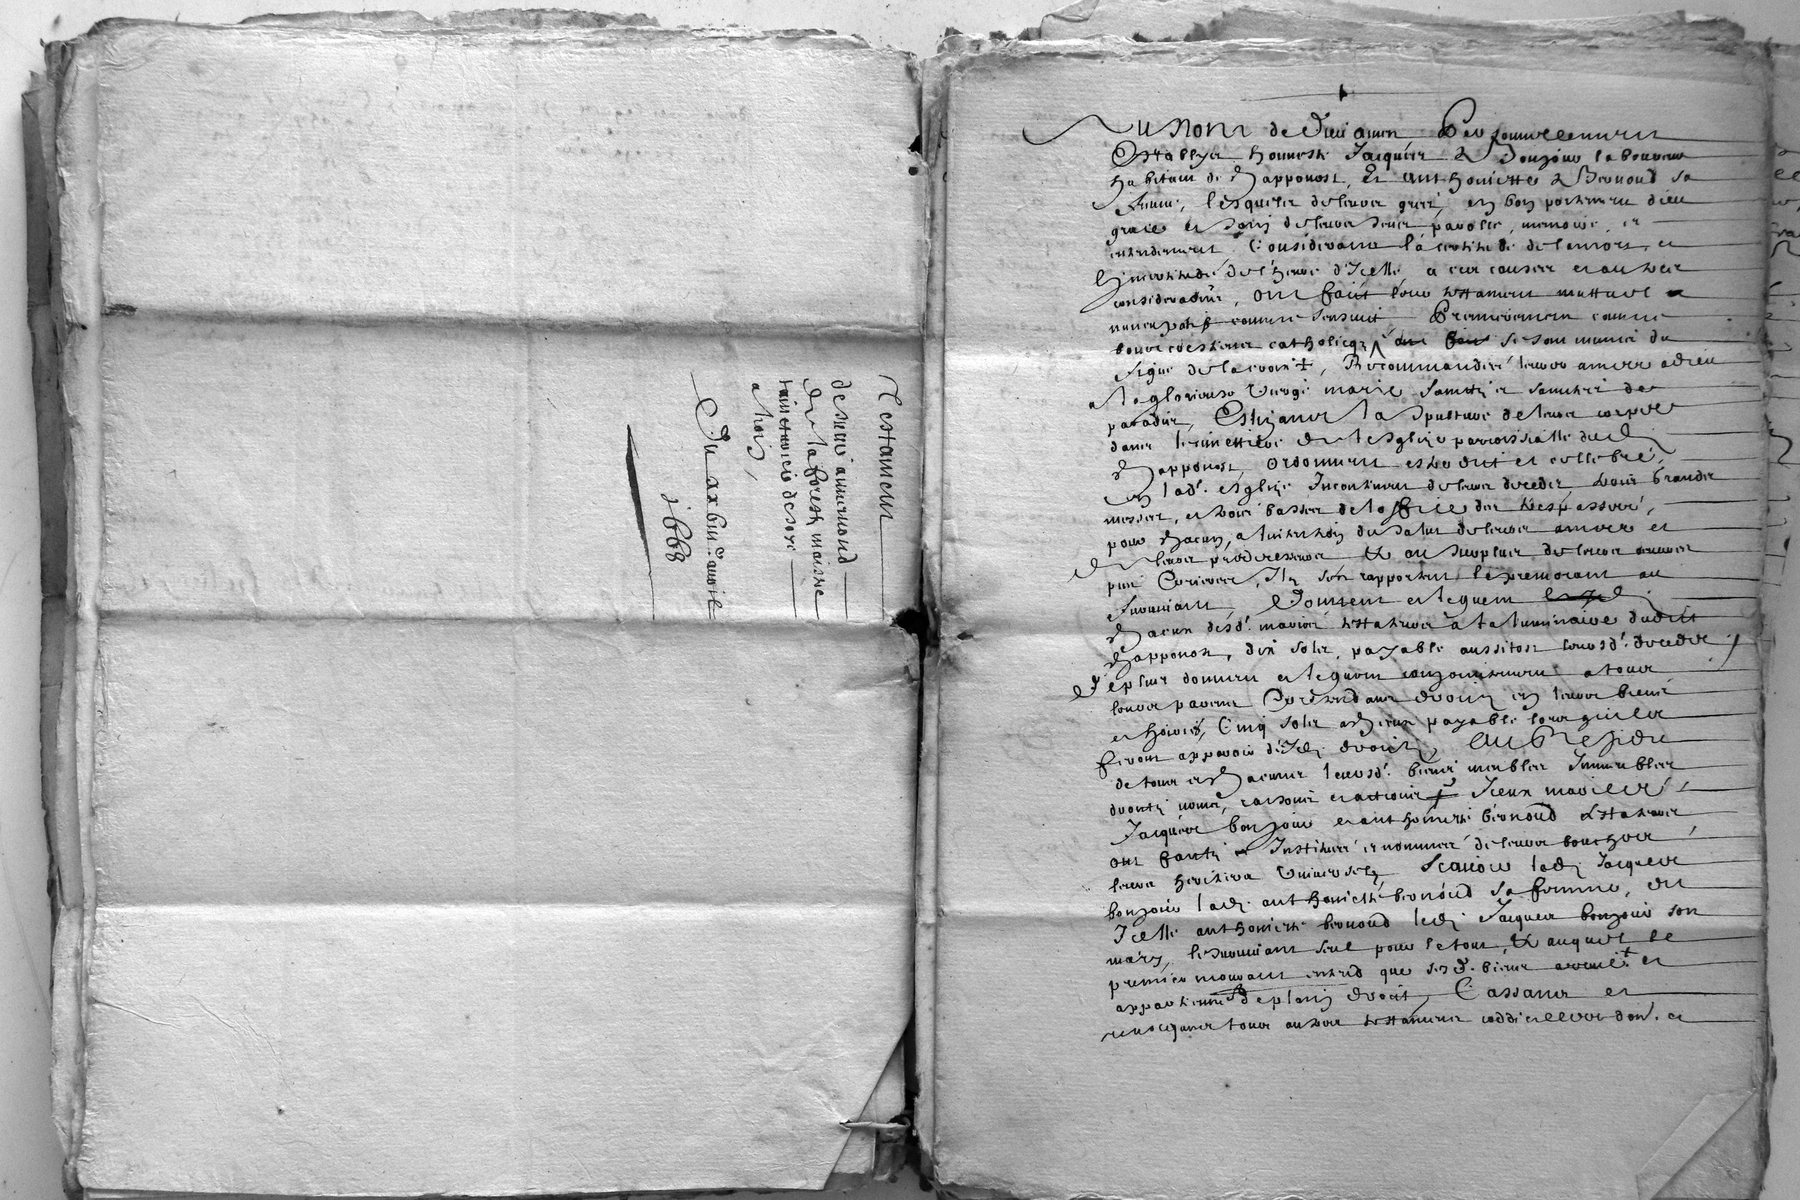 Testament
de Remi aimernond
de la forest maistre
a lion,
Du xxviii.e avril
1668
Au Nom de Dieu amen Personnellement
Establys honneste Jacques Bonjour laboureur
habitant de Chapponost, Et Anthoinette Bronoud sa
femme, lesquels de leurs grez, en bon portement dieu
grace et sains de leurs sens parolle, memoire, et
entendement, Considerans la certitude de la mort, et
l'incertitude de l'heure d'Icelle, a ces causes et autres
considerations, Ont faict leur testament mutuel
nuncupatif comme sensuit Premierement comme
bons chrestiens catholiques se sont munis du
signe de la croix +, Recommandé leurs ames a dieu
a la glorieuse Vierge marie saincts et sainctes de
paradis, Eslizants la sepulture de leurs corps
dans le cimettiere de l'esglize parroissialle dud.
Chapponost, Ordonnent estre dit et cellebré,
en lad. esglize Incontinent de leurs decedz, trois grandes
messes, et trois basses de l'office des trespassés,
pour chacun, a l'intention du salut de leurs ames et
de leurs predecesseurs Et au surplus de leurs œuvres
pies Ilz s'en rapportent le premourant au
survivant, Donnent et leguent
Chacun desd. mariez testateurs a la luminaire dudit
Chapponost, dix solz, payable aussitost leursd. decedz
De plus donnent et leguent conjointement a tous
leurs parens Pretendans droict en leurs biens
et hoiries, Cinq solz a chacun payable lors quilz
feront apparoir desd. droicts, Au Residu
de tous et chacuns leursd. biens meubles Immeubles
droicts noms, raisons et actions Iceux mariez
Jacques bonjour et anthoinette bronoud testateurs
ont faict Institué et nommé de leurs bouches
leurs heritiers Universels, Scavoir led. Jacques
bonjour lad. anthoinette bronoud sa femme, Et
Icelle anthoinette bronoud led. Jacques bonjour son
mary, le survivant seul pour le tout, Et auquel le
premier mourant entend que sesd. biens et
appartiennent de plein droict, Cassans et
revocquans tous autres testaments coddicilles don. et